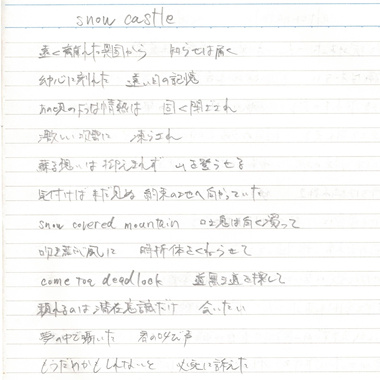 snow castle
遠く離れた異国から 知らせは届く
幼心に刻んだ 遠い日の記憶
あの頃のような情熱は 固く閉ざされ
激しい吹雪に 凍らされ
募る想いは抑えきれず 山を登らせる
足付けば まだ見ぬ 約束の地へ向かっていた
snow covered mountain 吐息は白く濁って
吹き荒ぶ風に 時折体をくねらせて
come to a deadlock 道無き道を探して
頼れるのは潜在意識だけ 会いたい
夢の中で囁いた 君の叫び声
もうだめかもしれないと 必死に訴えた